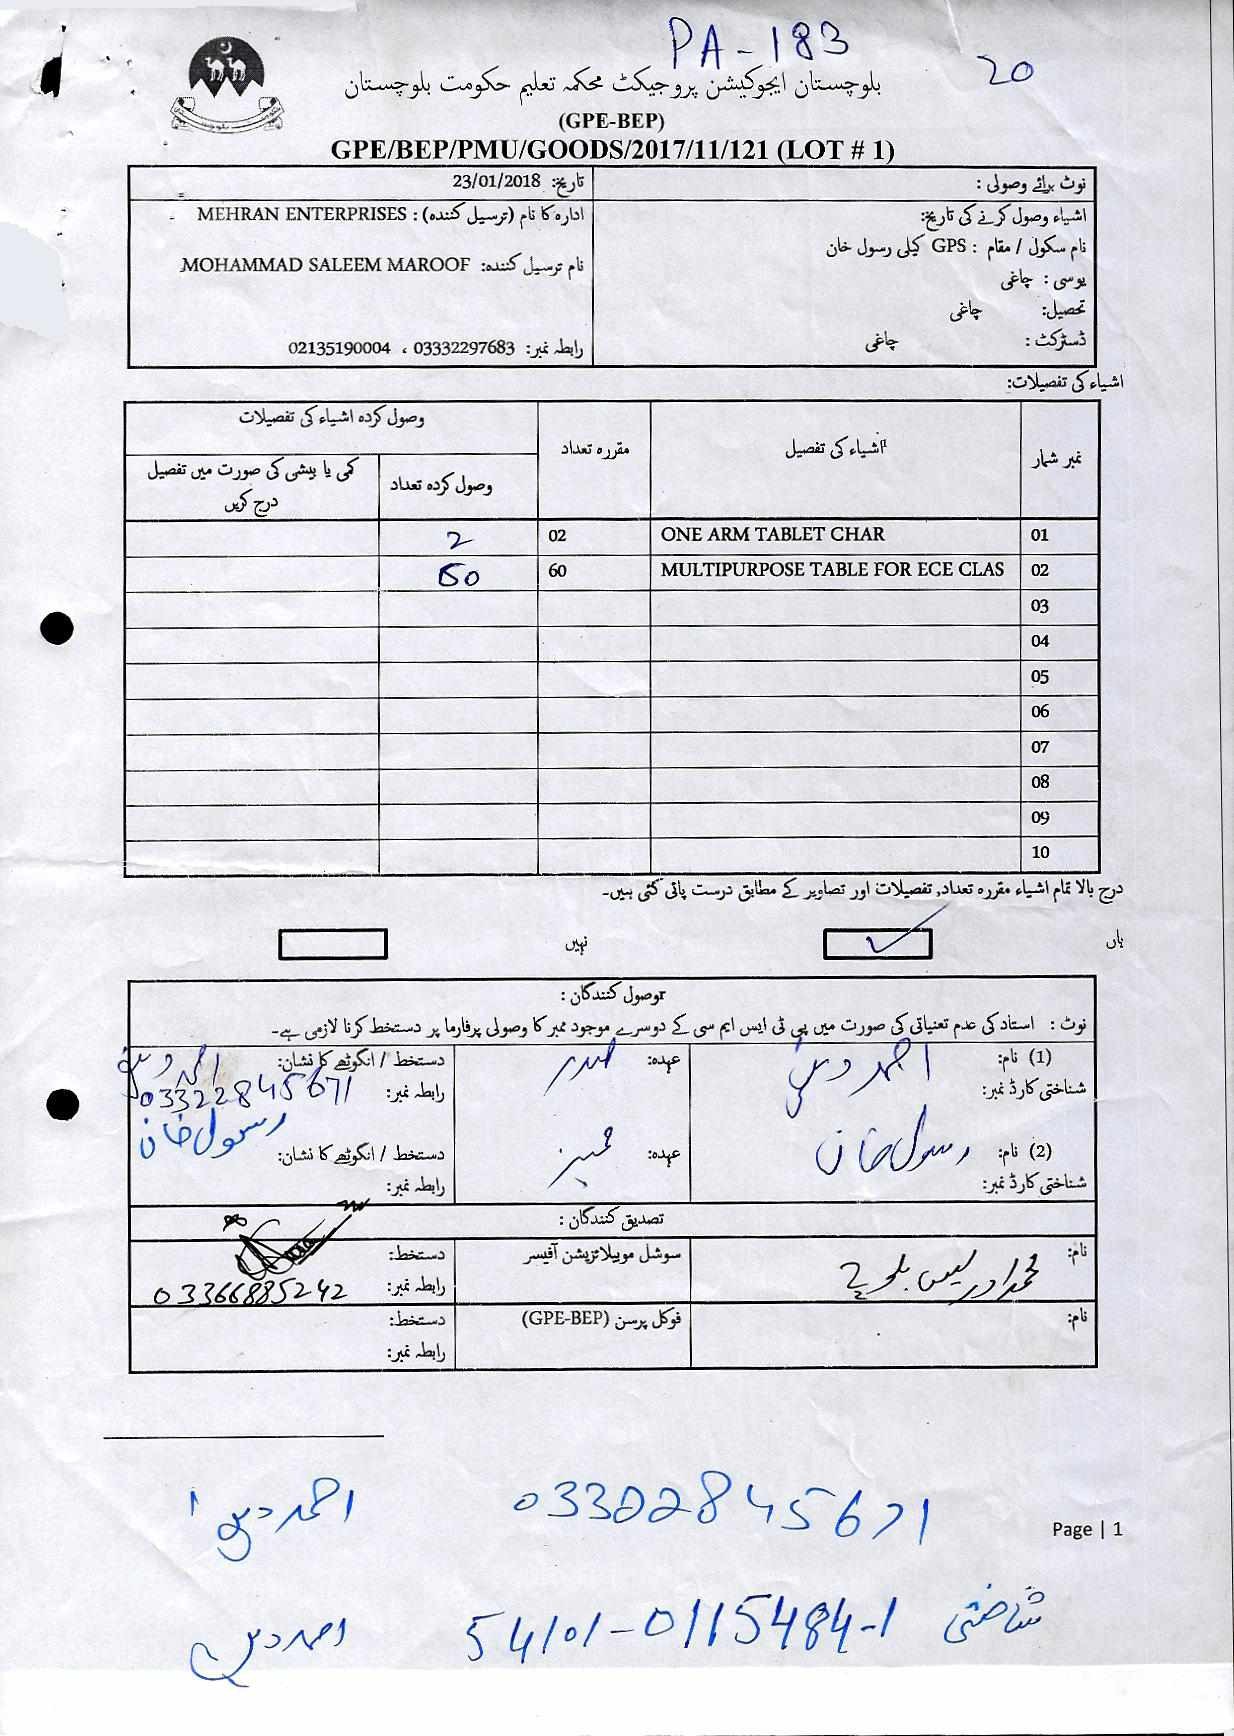 PA-183
20
بلوچستان ایجوکیشن پروجیکٹ محکمہ تعلیم حکومت بلوچستان
(GPE-BEP)
GPE/BEP/PMU/GOODS/2017/11/121 (LOT # 1)
نوٹ برائے وصولی :
تاریخ: 23/01/2018
اشیاء وصول کرنے کی تاریخ:
ادارہ کا نام (ترسیل کنندہ) : MEHRAN ENTERPRISES
نام سکول / مقام : GPS کیلی رسول خان
نام ترسیل کنندہ: MOHAMMAD SALEEM MAROOF
یوسی : چاغی
تحصیل: چاغی
ڈسٹرکٹ : چاغی
رابطہ نمبر: 03332297683 ، 02135190004
اشیاء کی تفصیلات:
نمبر شمار اشیاء کی تفصیل مقررہ تعداد وصول کردہ اشیاء کی تفصیلات
وصول کردہ تعداد کمی یا بیشی کی صورت میں تفصیل درج کریں
01 ONE ARM TABLET CHAR 02 2
02 MULTIPURPOSE TABLE FOR ECE CLAS 60 60
03
04
05
06
07
08
09
10
درج بالا تمام اشیاء مقررہ تعداد, تفصیلات اور تصاویر کے مطابق درست پائی گئی ہیں۔
ہاں نہیں
وصول کنندگان :
نوٹ : استاد کی عدم تعنیاتی کی صورت میں پی ٹی ایس ایم سی کے دوسرے موجود ممبر کا وصولی پرفارما پر دستخط کرنا لازمی ہے۔
(1) نام: احمد دین عہدہ: صدر دستخط / انگوٹھے کا نشان: احمد دین
شناختی کارڈ نمبر: رابطہ نمبر: 03322845671
(2) نام: رسول خان عہدہ: ممبر دستخط / انگوٹھے کا نشان: رسول خان
شناختی کارڈ نمبر: رابطہ نمبر:
تصدیق کنندگان :
نام: محمد ادریس بلوچ سوشل موبیلائزیشن آفیسر دستخط:
رابطہ نمبر: 03366885242
نام: فوکل پرسن (GPE-BEP) دستخط:
رابطہ نمبر:
احمد دین 03322845671
Page | 1
شاختی 54101-0115484-1 احمد دین